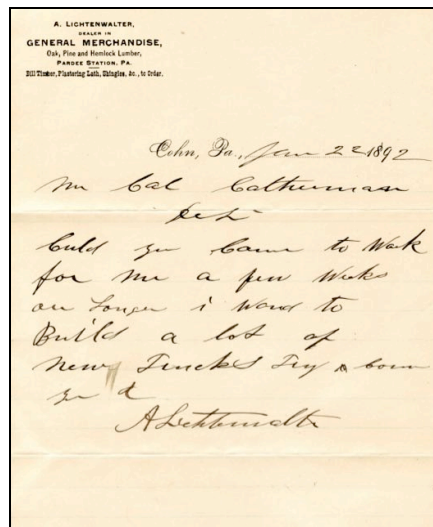 A. LICHTENWALTER,
DEALER IN
GENERAL MERCHANDISE,
Oak, Pine and Hemlock Lumber,
PARDEE STATION, PA.
Bill Timber, Plastering Lath, Shingles, &c., to Order.
Cohn, Pa., Jan 22 1892
Mr Cal Catherman
Culd you Come to Work
for me a few Weeks
or Longer i Want to
Build a lot of
New Trucks Try & Come
A Lichtenwalter